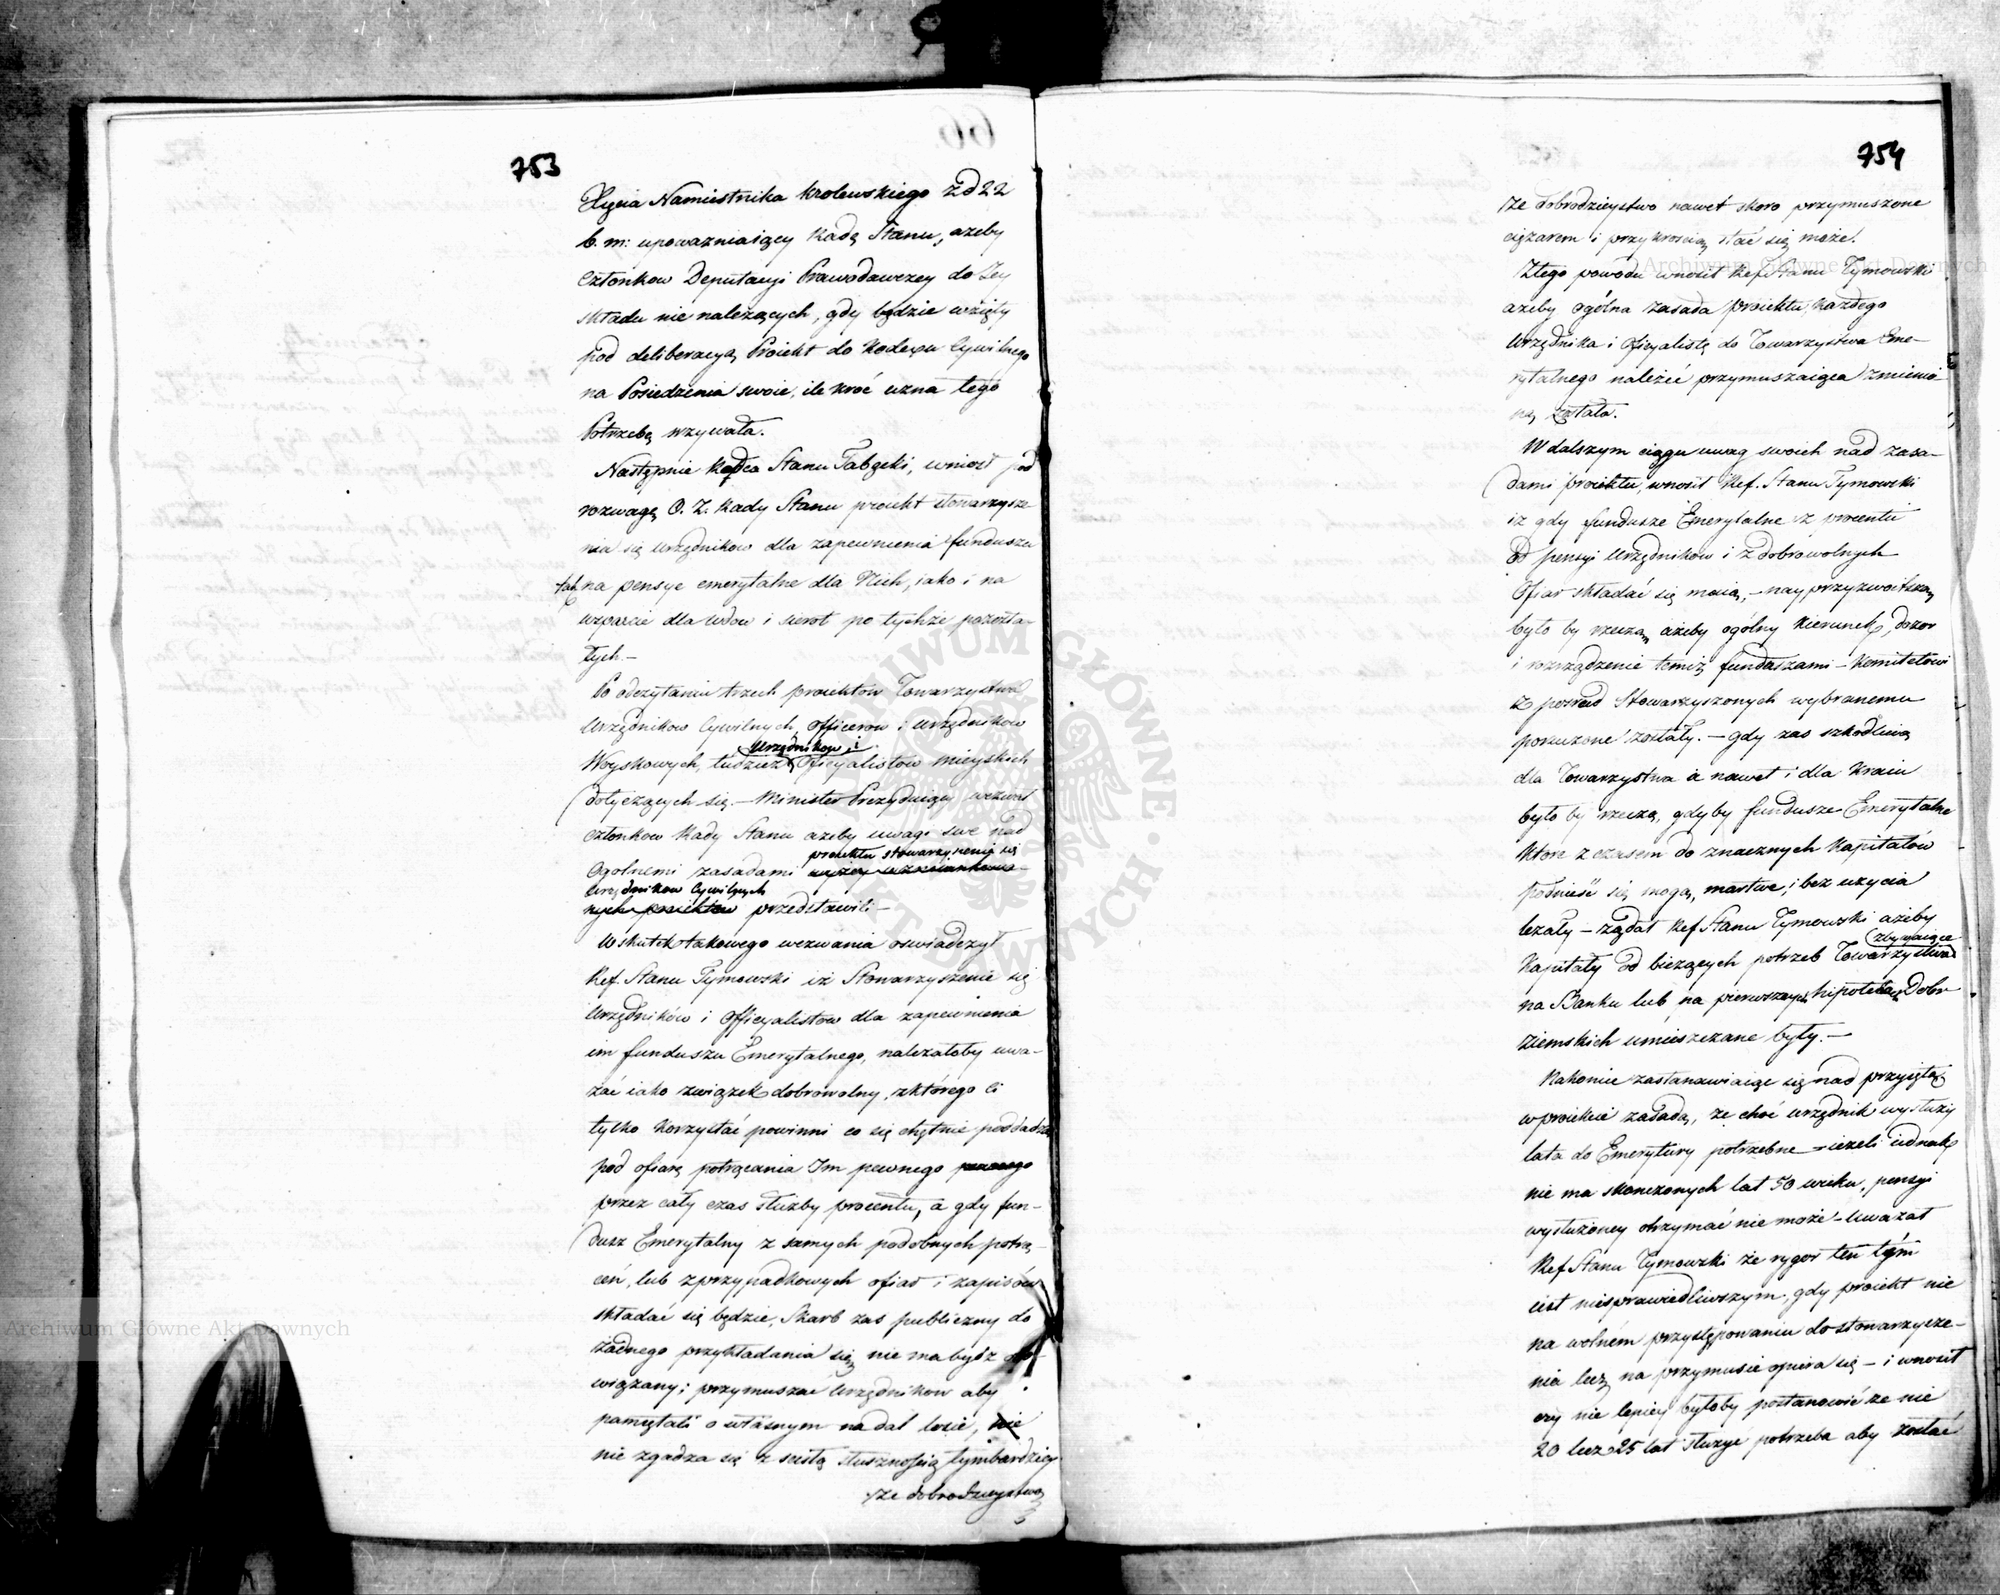 753
Xięcia Namiestnika Krolewskiego z d 22
b. m: upoważniaiący Radę Stanu, ażeby
Członkow Deputacyi Prawodawczey do Jey
składu nie należących, gdy będzie wzięty
pod deliberacyą Proiekt do Kodexu Cywilnego
na Posiedzenia swoie, ile kroć uzna tego
Potrzebę wzywała.
Następnie Radca Stanu Tabęcki, wniósł pod
rozwagę O. Z. Rady Stanu proiekt stowarzysze
nia się urzędnikow dla zapewnienia funduszu
tak na pensye emerytalne dla Nich, iako i na
wsparcie dla wdow i sierot po tychże pozosta-
łych.—
Po odczytaniu trzech proiektow Towarzystwa
Urzędnikow Cywilnych, Officerow i urzędnikow
Urzędnikow i
Woyskowych, tudzież Oficyalistow mieyskich
dotyczących się.— Minister Prezyduiący wezwał
członkow Rady Stanu ażeby uwagi swe nad
proiektu stowarzyszenia się
Ogolnemi zasadami wyżey wzmiankowa-
urzędnikow Cywilnych
nych proiektow przedstawili—
Wskutek takowego wezwania oswiadczył
Ref. Stanu Tymowski iż Stowarzyszenie się
Urzędników i Officyalistow dla zapewnienia
im funduszu Emerytalnego, należałoby uwa-
żać iako związek dobrowolny, z którego ci
tylko korzystać powinni co się chętnie poddadzą
pod ofiarę potrącania Im pewnego
przez cały czas służby procentu, a gdy fun-
dusz Emerytalny z samych podobnych potrą-
ceń, lub z przypadkowych ofiar i zapisów
składać się będzie, Skarb zas publiczny do
żadnego przykładania się nie ma bydź obo-
wiązany; przymuszać Urzędnikow aby
pamiętali o własnym nadal losie, nie
nie zgadza się z scisłą słusznością tymbardziey
że dobrodzieystwo
754
że dobrodzieystwo nawet skoro przymuszone
ciężarem i przykrością stać się może.
Ztego powodu wnosił Ref. Stanu Tymowski
ażeby ogólna zasada proiektu, każdego
Urzędnika i Oficyalistę do Towarzystwa Eme-
rytalnego należeć przymuszaiąca zmienio-
ną została.
W dalszym ciągu uwag swoich nad zasa-
dami proiektu, wnosił Ref. Stanu Tymowski
iż gdy fundusze Emerytalne z procentu
od pensyi Urzędnikow i z dobrowolnych
Ofiar składać się maią,— nayprzyzwoitszą
było by rzeczą ażeby ogólny kierunek, dozor
i rozrządzenie temiż funduszami— Komitetowi
z posrod Stowarzyszonych wybranemu
poruczone zostały.— gdy zas szkodliwą
dla Towarzystwa a nawet i dla Kraiu
było by rzeczą, gdyby fundusze Emerytalne
które z czasem do znacznych kapitałów
podnieść się mogą, martwe i bez użycia
leżały— żądał Ref Stanu Tymowski ażeby
zbywaiące
Kapitały od bieżących potrzeb Towarzystwa
na Banku lub na pierwszych hipotekach Dobr
ziemskich umieszczane były.—
Nakoniec zastanawiaiąc się nad przyiętą
w proiekcie zasadą, że choć urzędnik wysłuży
lata do Emerytury potrzebne— ieżeli iednak
nie ma skonczonych lat 50 wieku, pensyi
wysłużoney otrzymać nie może— uważał
Ref Stanu Tymowski że rygor ten tym
iest niesprawiedliwszym, gdy proiekt nie
na wolném przystępowaniu do stowarzysze-
nia lecz na przymusie opiera się— i wnosił
czy nie lepiey byłoby postanowić że nie
20 lecz 25 lat służyć potrzeba aby zostać